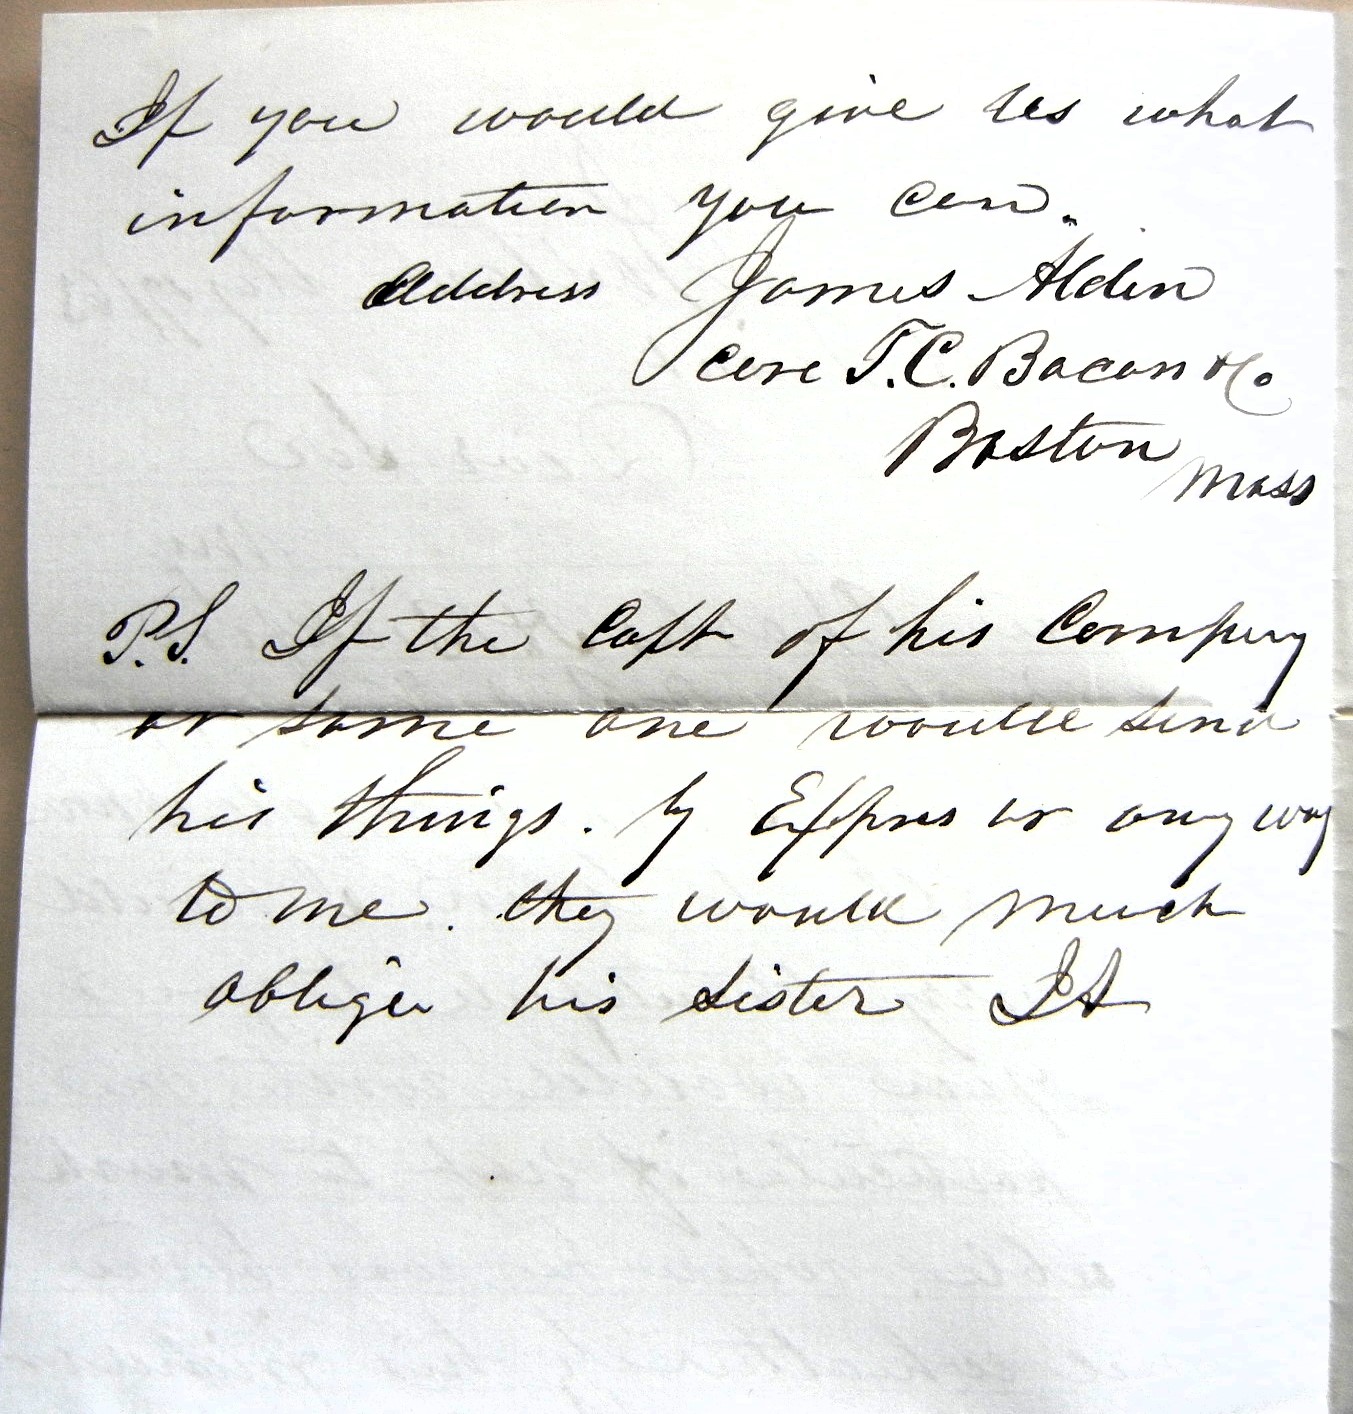 If you would give us what
information you can.
Address James Alden
Care T. C. Bacon & Co
Boston
Mass
P.S. If the Capt of his Company
or some one would send
his things. by Express or any way
to me. they would much
oblige his sister